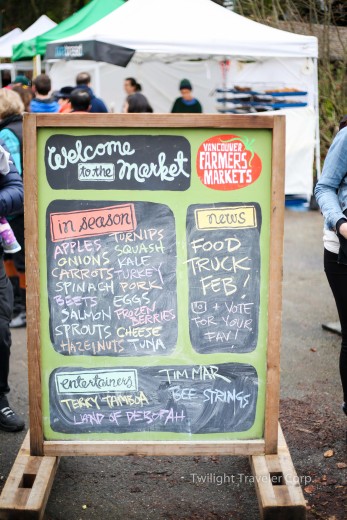 Welcome
to the
Market
VANCOUVER
FARMERS
MARKETS
in season
APPLES
ONIONS
CARROTS
SPINACH
BEETS
SALMON
SPROUTS
HAZELNUTS
TURNIPS
SQUASH
KALE
TURKEY
PORK
EGGS
FROZEN
BERRIES
CHEESE
TUNA
news
FOOD
TRUCK
FEB!
+ VOTE
FOR YOUR
FAV!
entertainers
TERRY TAMBOA
LAND OF DEBORAH
TIM MAR
BEE STRINGS
Twilight Traveler Corp.